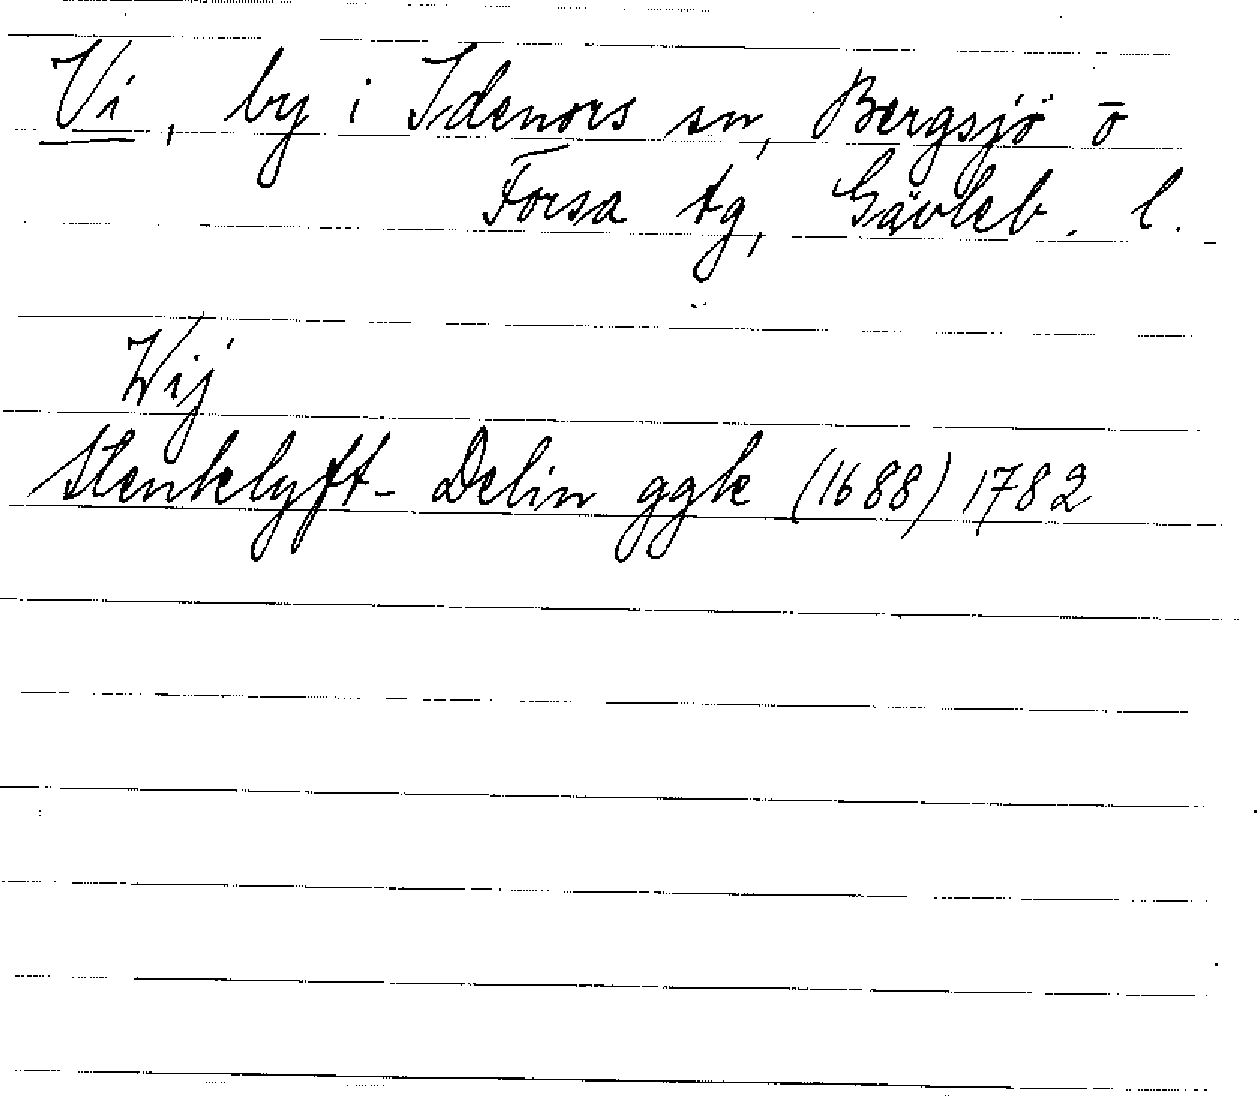 Vi, by i Idenors sn, Bergsjö o
Forsa tg, Gävleb. l.
Wij
Stenklyft- Delin ggk (1688) 1782